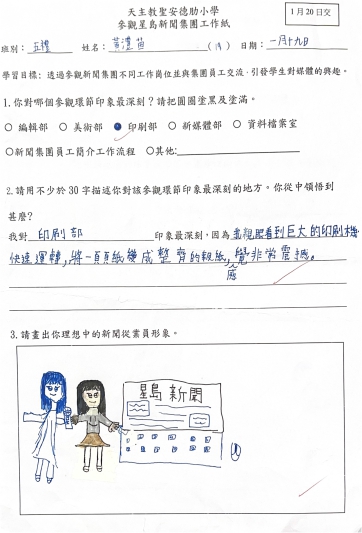 天主教聖安德肋小學
參觀星島新聞集團工作紙
1月20日交
班別：五禮 姓名： (19) 日期：一月十九日
學習目標：透過參觀新聞集團不同工作崗位並與集團員工交流，引發學生對媒體的興趣。
1.你對哪個參觀環節印象最深刻？請把圓圈塗黑及塗滿。
○ 編輯部 ○ 美術部 ● 印刷部 ○ 新媒體部 ○ 資料檔案室
○新聞集團員工簡介工作流程 ○其他:
2.請用不少於 30 字描述你對該參觀環節印象最深刻的地方。你從中領悟到
甚麼?
我對 印刷部 印象最深刻，因為 親眼看到巨大的印刷機
快速運轉，將一頁頁紙變成整齊的報紙，感覺非常震撼。
3.請畫出你理想中的新聞從業員形象。
星島 新聞